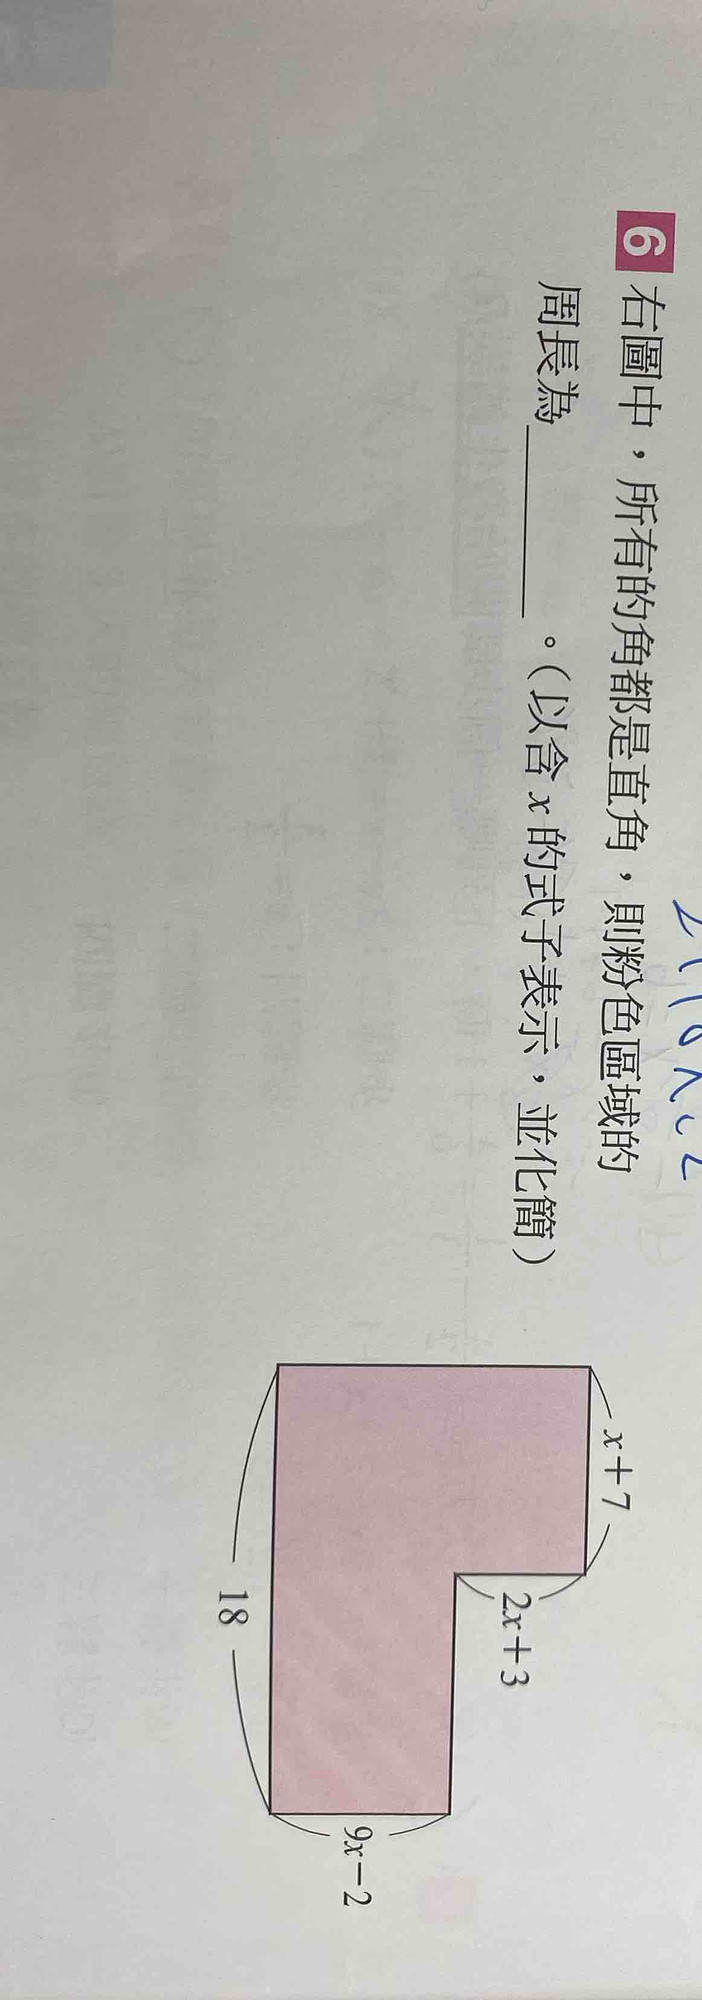 6 右圖中，所有的角都是直角，則粉色區域的
周長為＿＿＿＿。（以含 x 的式子表示，並化簡）
x＋7
2x＋3
9x－2
18